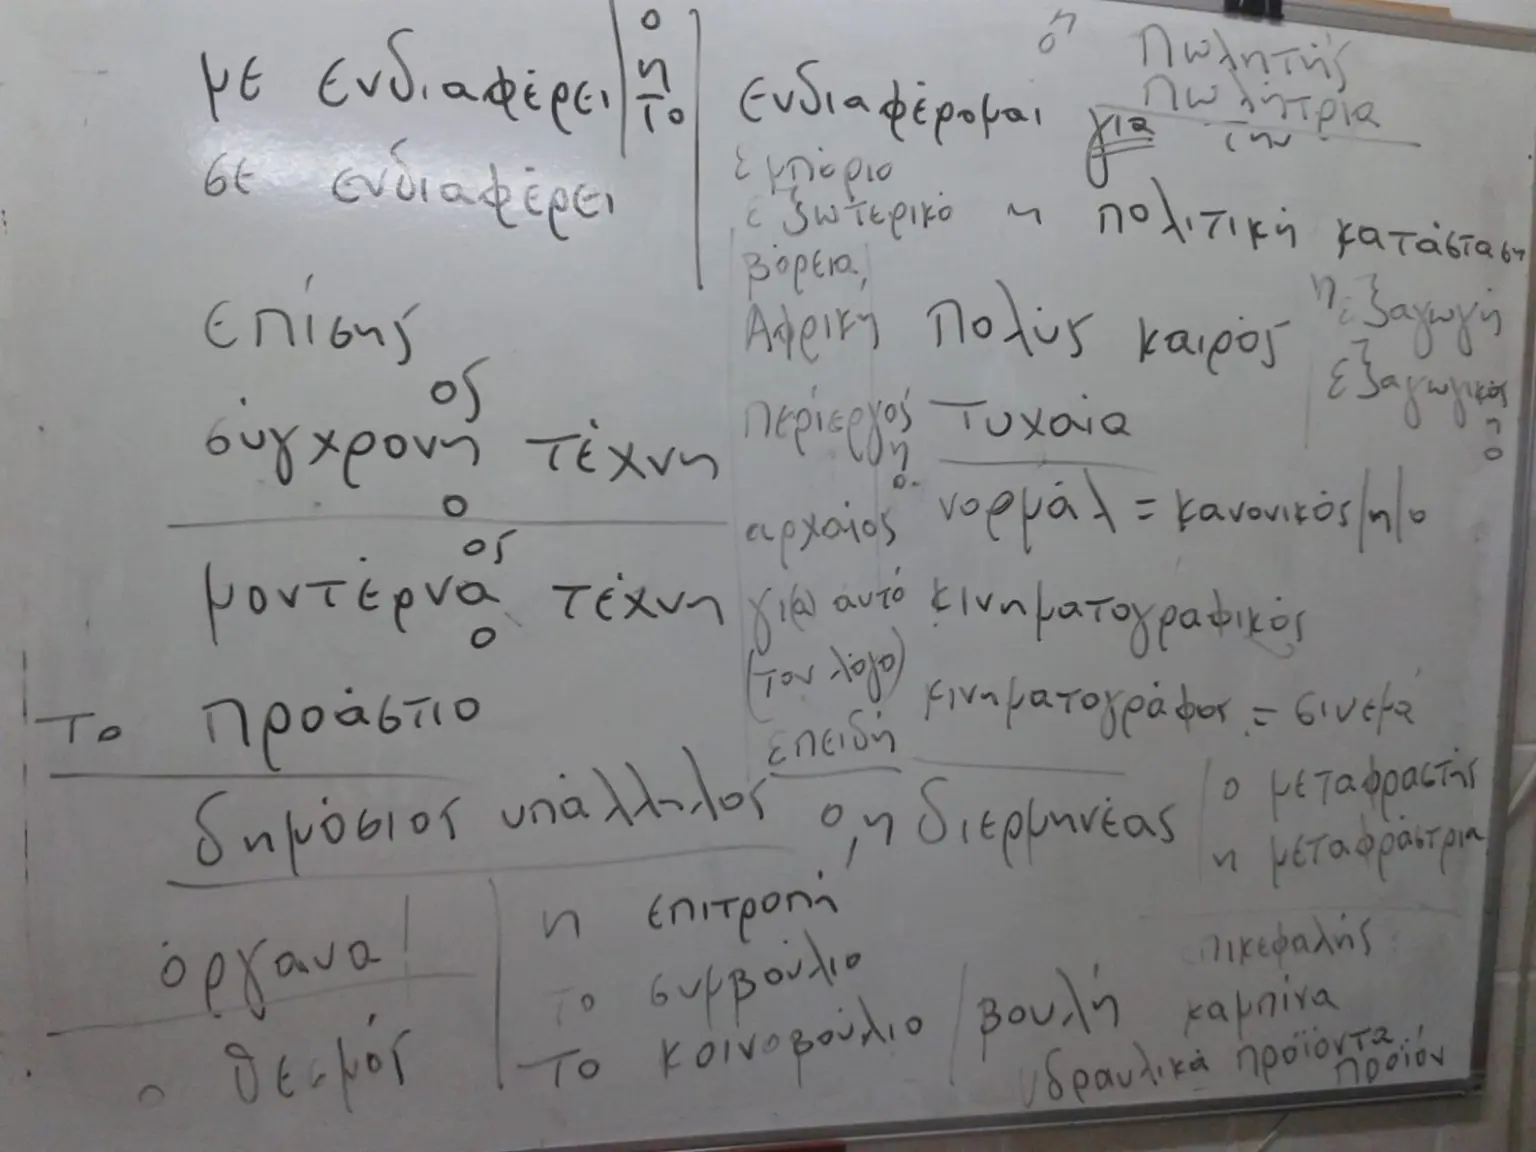 με ενδιαφέρει ο η το
σε ενδιαφέρει
επίσης
σύγχρονη ος ο τέχνη
μοντέρνα ος ο τέχνη
το προάστιο
δημόσιος υπάλληλος
όργανα!
θεσμός
ενδιαφέρομαι για την
εμπόριο
εξωτερικό
βόρεια
Αφρική
περίεργος η ο
αρχαίος
γι(α) αυτό
(τον λόγο)
επειδή
ο η Πωλητής
Πωλήτρια
η πολιτική κατάσταση
Πολύς καιρός
η εξαγωγή
εξαγωγικός
η
ο
Τυχαία
νορμάλ = κανονικός/η/ο
κινηματογραφικός
κινηματογράφος = σινεμά
ο, η διερμηνέας
ο μεταφραστής
η μεταφράστρια
η επιτροπή
το συμβούλιο
το κοινοβούλιο / βουλή
καμπίνα
υδραυλικά προϊόντα
προϊόν